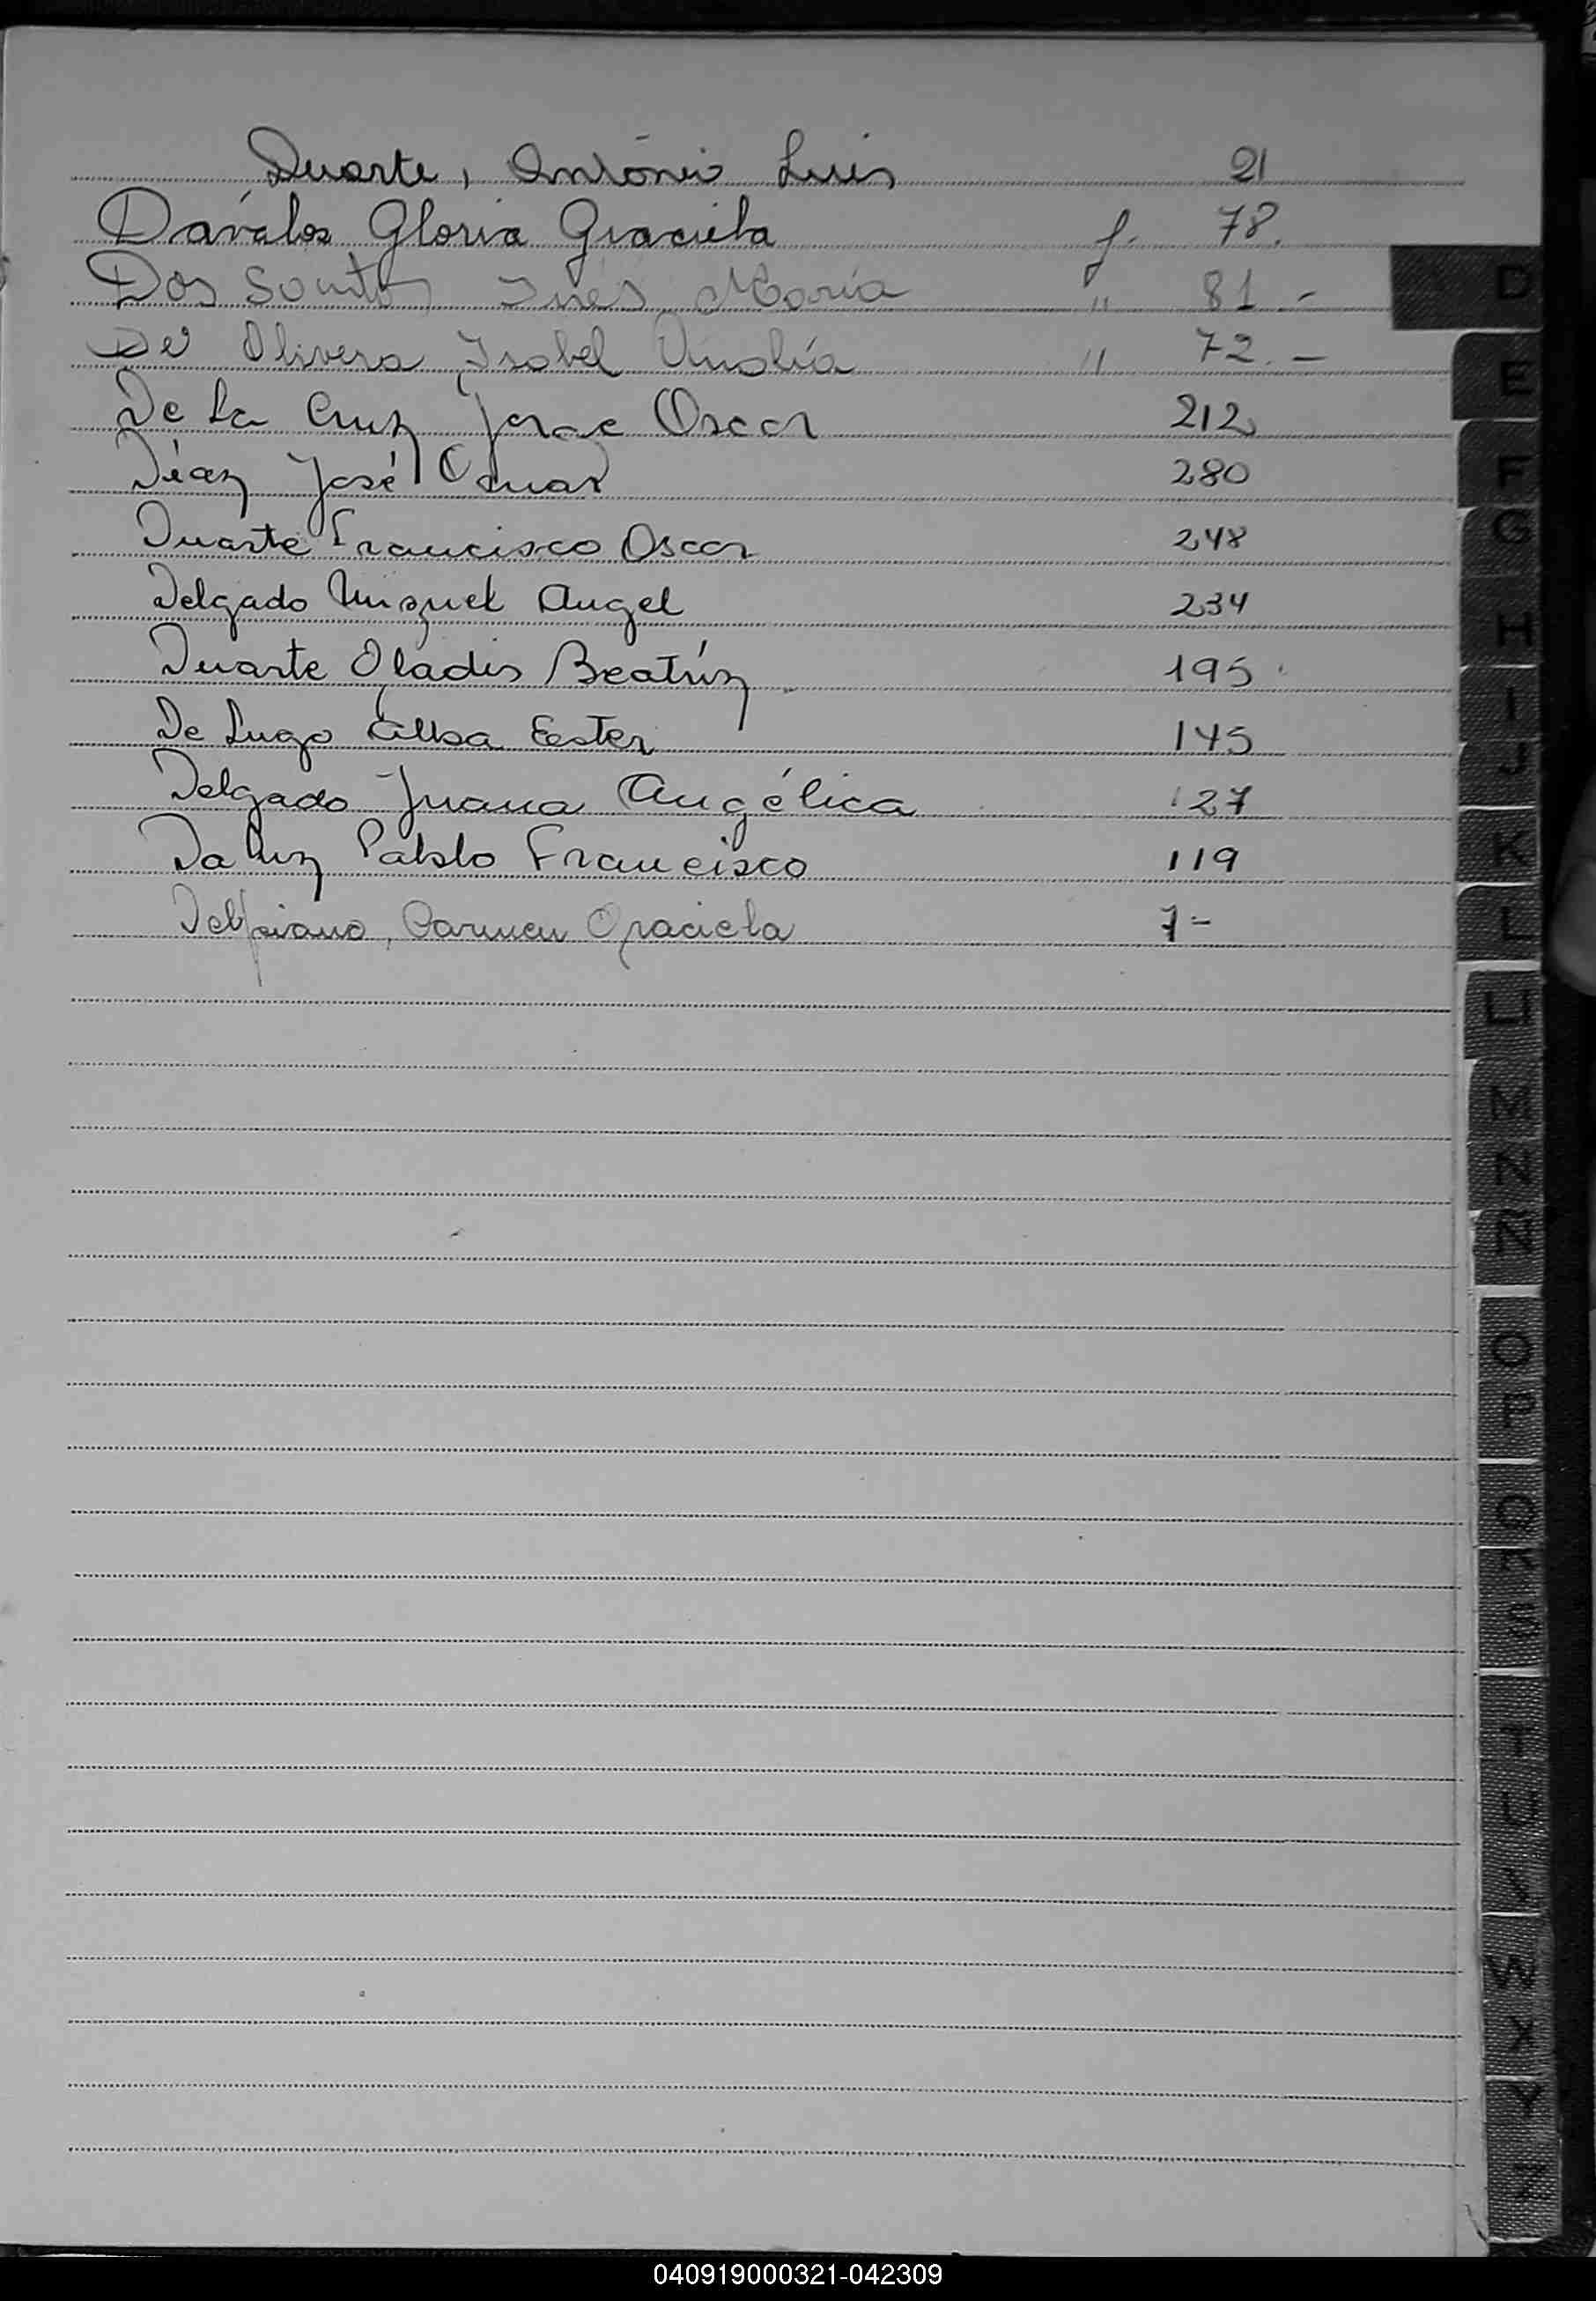 Duarte, António Luis 21
Daválos Gloria Graciela f. 78.
Dos Santos Inés María " 81 -
De Olivera Isabel Amalía " 72. -
De La Cruz Jorge Oscar 212
Díaz José Omar 280
Duarte Francisco Oscar 248
Delgado Miguel Angel 234
Duarte Gladis Beatríz 195
De Lugo Elba Ester 145
Delgado Juana Angélica 127
Da Luz Pablo Francisco 119
Carmen Graciela 7-
D
E
F
G
H
I
J
K
L
LL
M
N
Ñ
O
P
Q
R
S
T
U
V
W
X
Y
Z
040919000321-042309